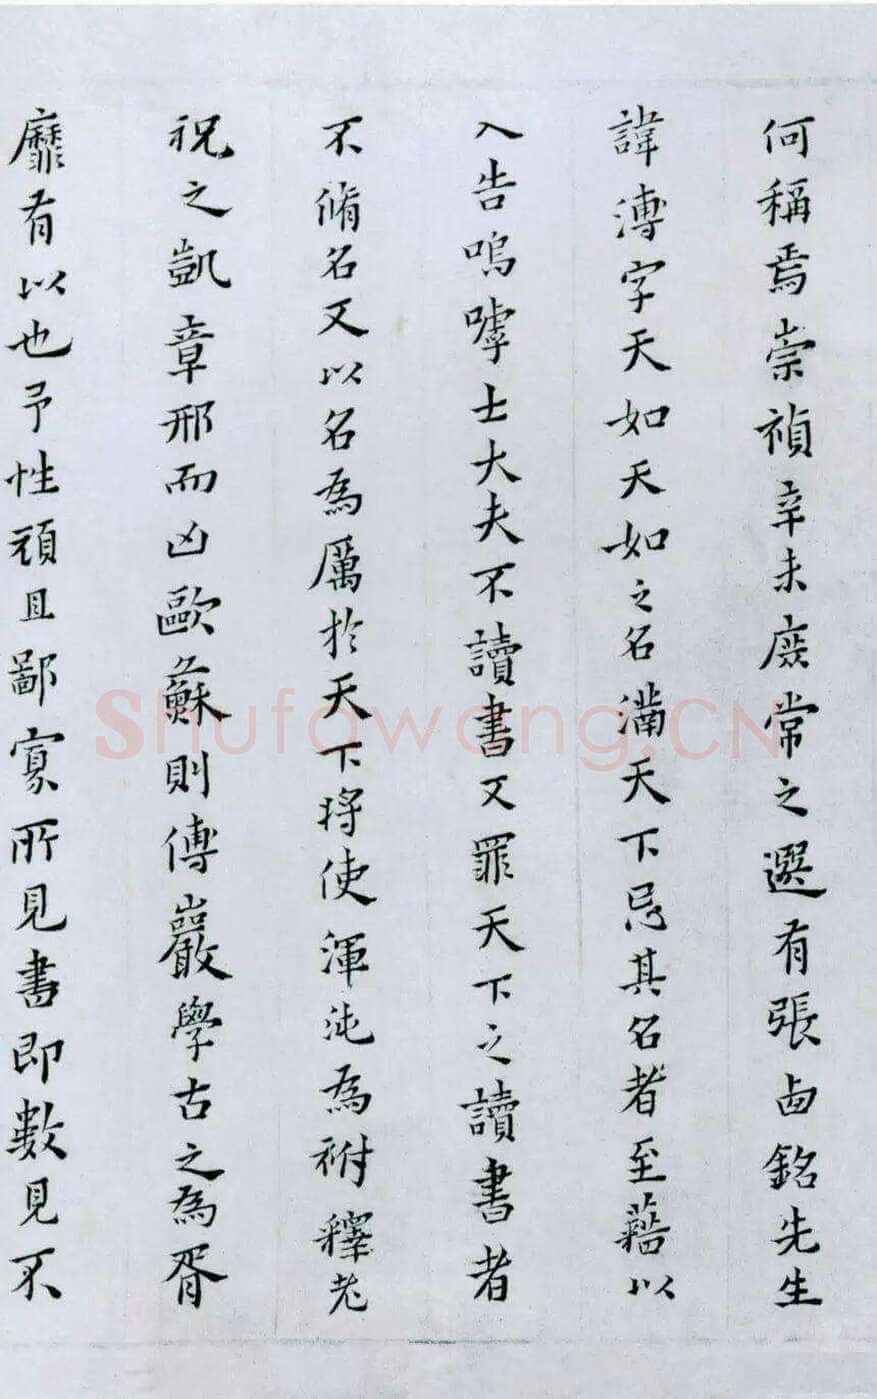 何稱焉崇禎辛未庶常之選有張卥銘先生
諱溥字天如天如之名滿天下忌其名者至藉以
入告嗚嘑士大夫不讀書又罪天下之讀書者
不脩名又以名為厲於天下將使渾沌為祔釋老
祝之凱章邢而凶歐蘇則傅巖學古之為胥
靡有以也予性頑且鄙寡所見書即數見不
Shufawang.CN